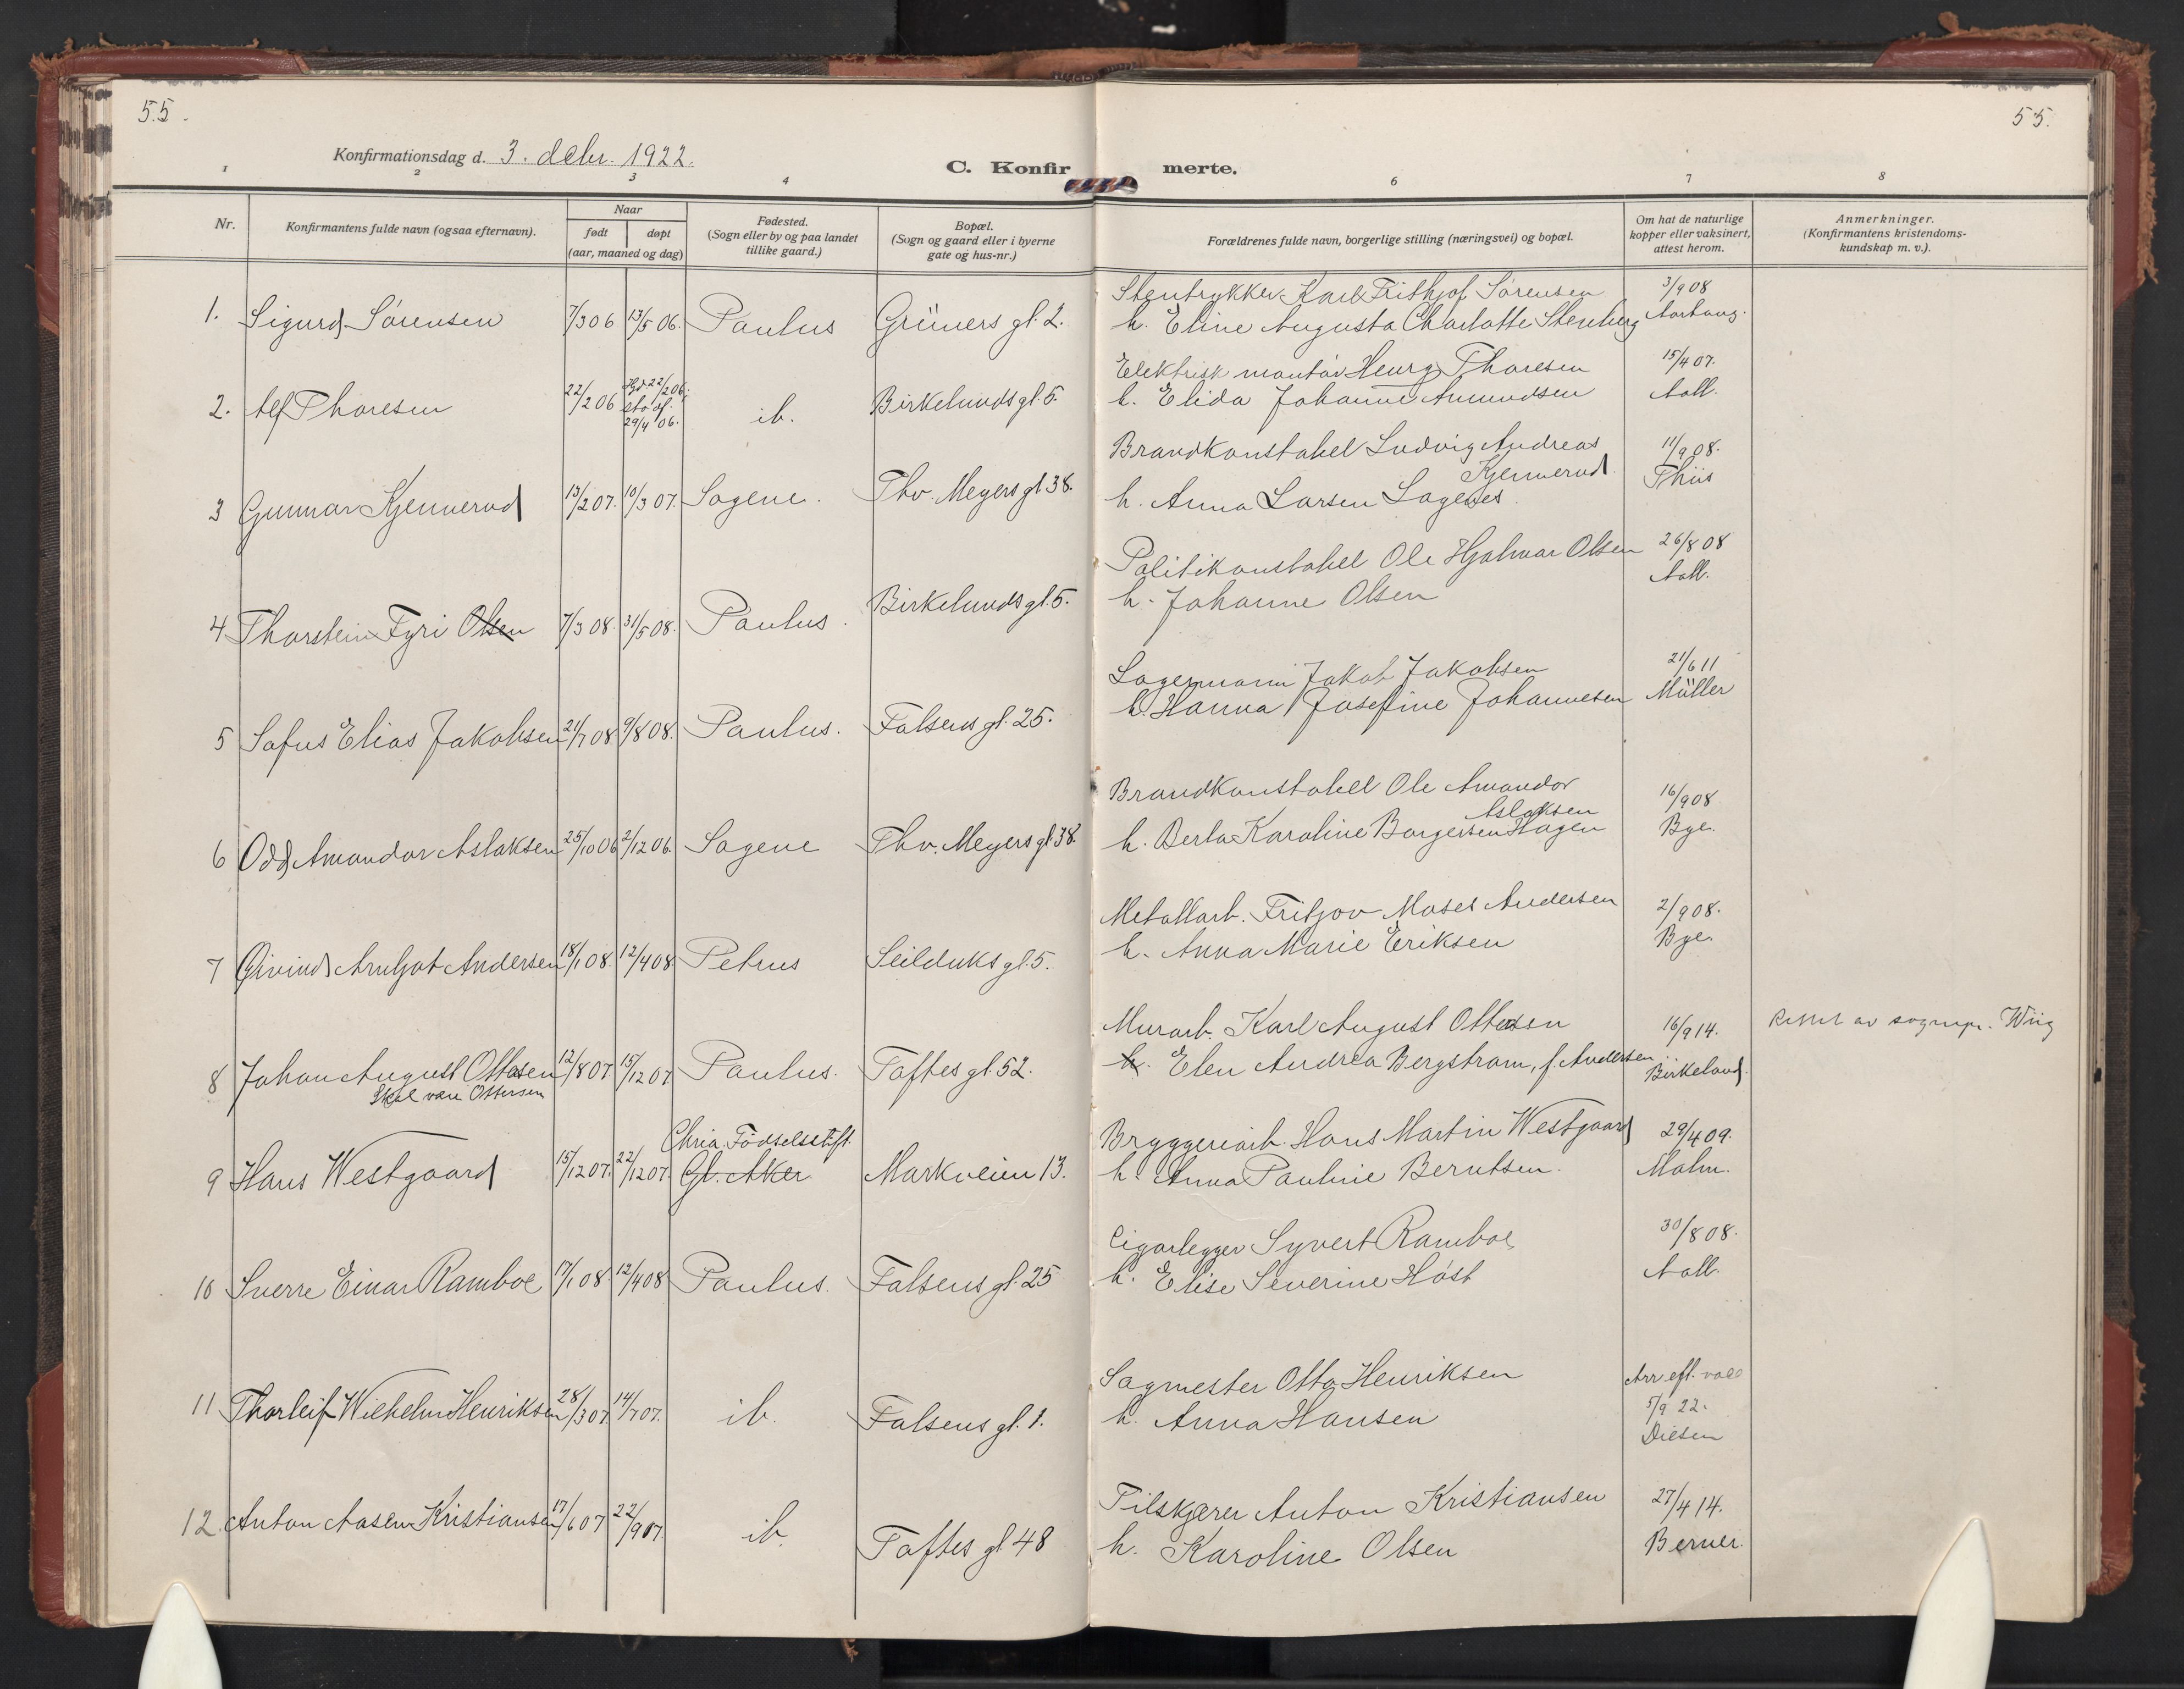 55.
55.
Konfirmationsdag d. 3. debr. 1922.
C. Konfirmerte.
1 2 3 4 6 7 8
Nr.
Konfirmantens fulde navn (ogsaa efternavn).
Naar
født døpt
(aar, maaned og dag)
Fødested.
(Sogn eller by og paa landet
tillike gaard.)
Bopæl.
(Sogn og gaard eller i byerne
gate og hus-nr.)
Forældrenes fulde navn, borgerlige stilling (næringsvei) og bopæl.
Om hat de naturlige
kopper eller vaksinert,
attest herom.
Anmerkninger.
(Konfirmantens kristendoms-
kundskap m. v.).
1. Sigurd Sørensen 7/3 06 13/5 06. Paulus Grüners gt. 2.
Stentrykker Karl Frithjof Sørensen 3/9 08
h. Eline Augusta Charlotte Stenberg
2. Alf Thoresen 22/2 06 Hjd. 22/2 06; 29/4 06. ib. Birkelunds gt. 5.
Elektrisk montør Henry Thoresen 15/4 07.
h. Elida Johanne Amundsen Aall.
3 Gunnar Kjennerud 13/2 07. 10/3 07. Sagene. Thv. Meyers gt 38.
Brandkonstabel Ludvig Andreas 11/9 08.
Kjennerud Thiis
h. Anna Larsen Lagenes.
4 Thorstein Fyri Olsen 7/3 08. 31/5 08. Paulus. Birkelunds gt. 5.
Politikonstabel Ole Hjalmar Olsen 26/8 08
h. Johanne Olsen Aall.
5 Sofus Elias Jakobsen 21/7 08 9/8 08. Paulus. Falsens gt. 25.
Lagermann Jakob Jakobsen 21/6 11
h. Hanna Josefine Johannesen Müller
6 Odd Amandor Aslaksen 25/10 06 2/12 06. Sagene Thv. Meyers gt 38.
Brandkonstabel Ole Amandor 16/9 08
Aslaksen
h. Berta Karoline Borgersen Hagen Bye.
7 Øivind Arnljot Andersen 18/1 08. 12/4 08 Petrus Seilduks gt. 5.
Metallarb. Fritjov Moses Andersen 2/9 08.
h. Anna Marie Eriksen Bye.
8 Johan August Ottosen 12/8 07. 15/12 07. Paulus. Toftes gt. 52.
Skal være Ottersen
Murarb. Karl August Ottesen 16/9 14. Rettet av sognepr. Wiig
h. Elen Andrea Bergstrøm, f. Andersen Birkeland.
9 Hans Westgaard 15/12 07. 22/12 07. Chria. Fødselsstift. Gl. Aker. Markveien 13.
Bryggeriarb. Hans Martin Westgaard 29/4 09.
h. Anna Pauline Berntsen. Malm.
10 Sverre Einar Ramboe 17/1 08 12/4 08 Paulus. Falsens gt. 25
Cigarlegger Syvert Ramboe 30/8 08.
h. Elise Severine Høst Aall.
11 Thorleif Wilhelm Henriksen 28/3 07 14/7 07. ib. Falsens gt. 1.
Sagmester Otto Henriksen Arr eft. vacc
h. Anna Hansen 5/9 22.
Diesen
12. Anton Aasen Kristiansen 17/6 07 22/9 07. ib. Toftes gt. 48
Filskjærer Anton Kristiansen 27/4 14.
h. Karoline Olsen Berner.